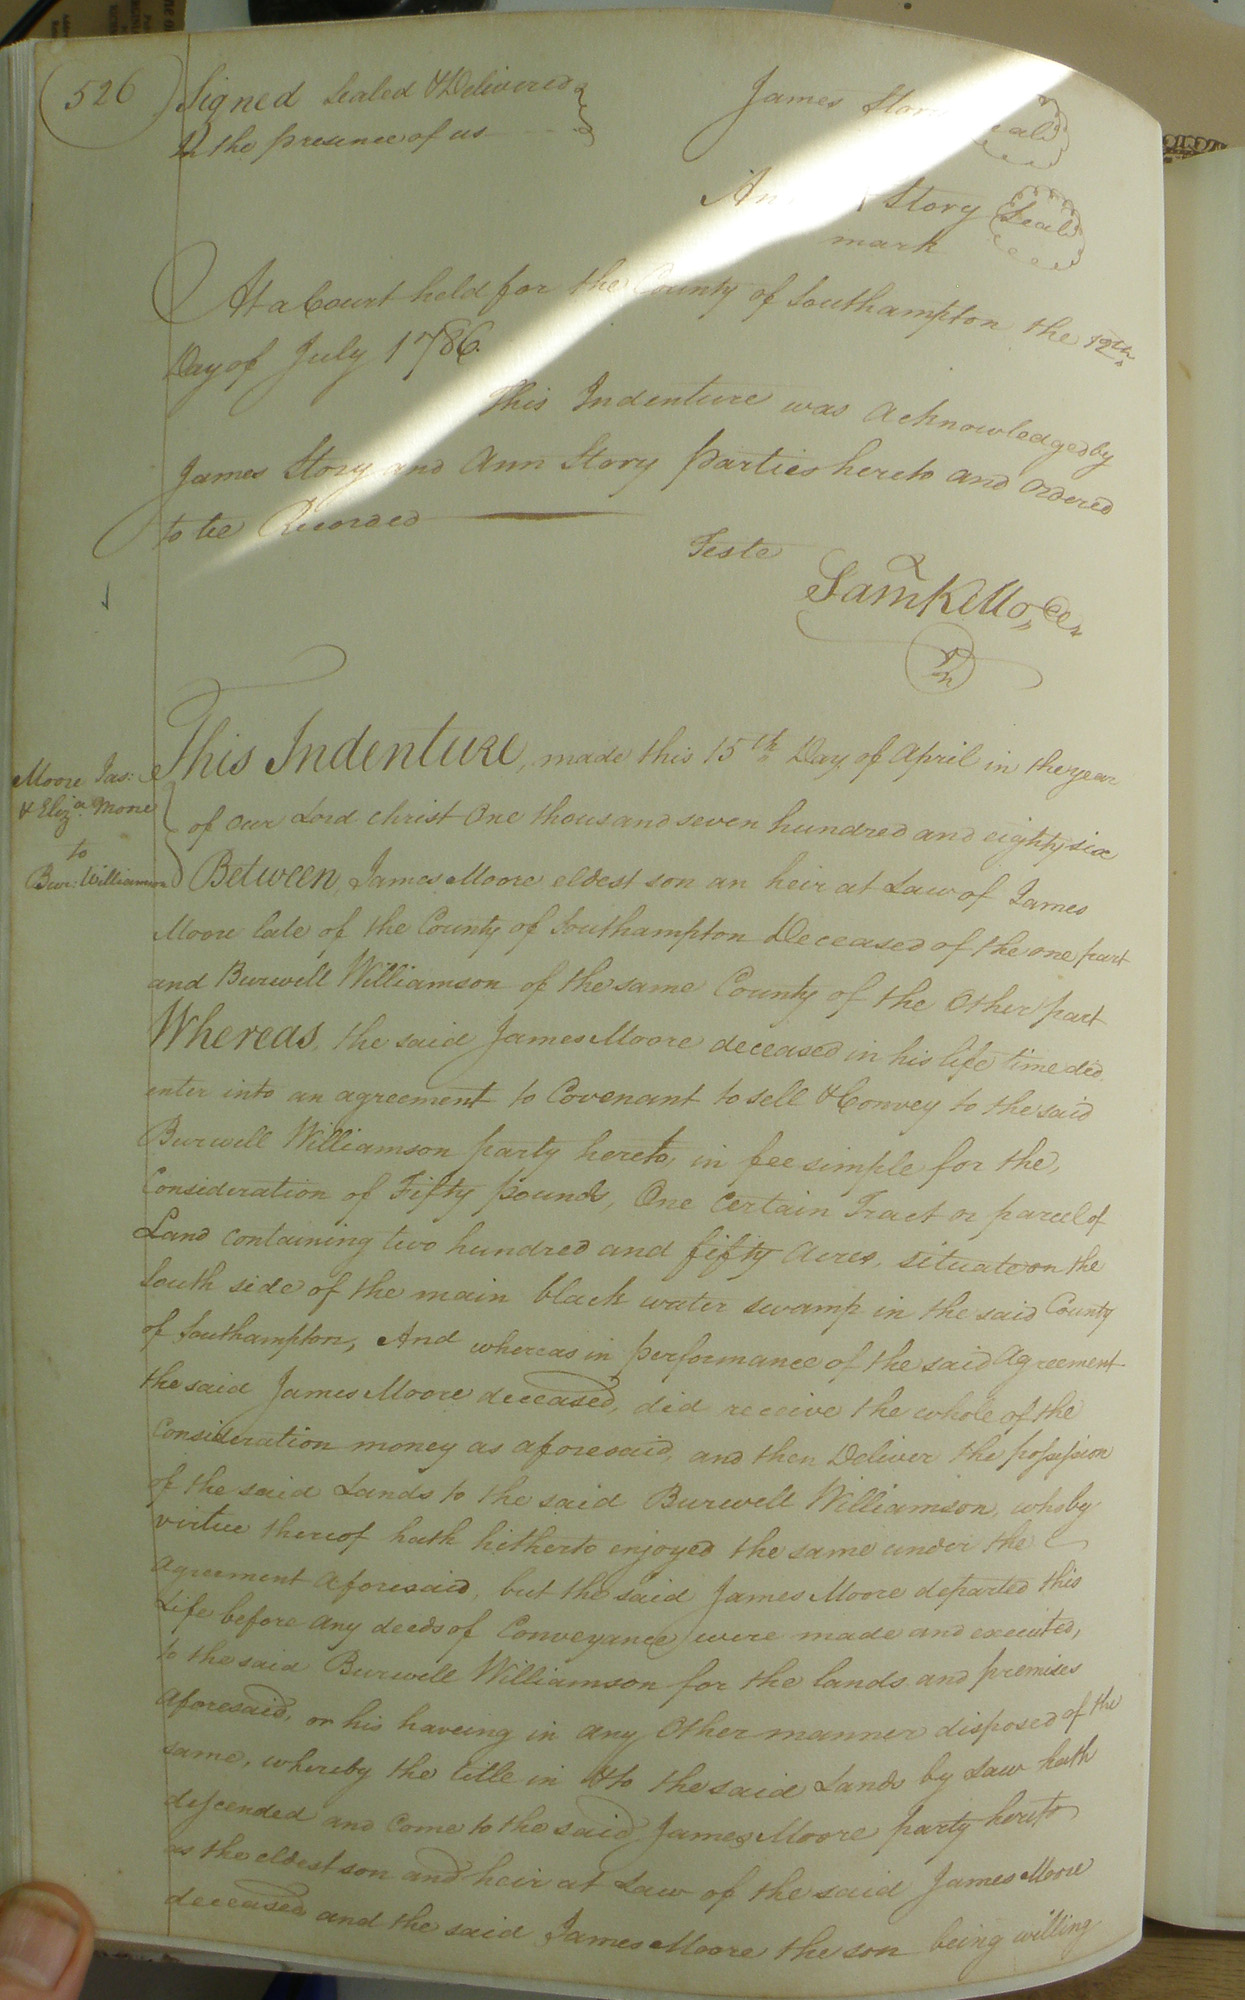 526
Signed Sealed & Delivered
In the presence of us
James Story Seal
Ann Story Seal
mark
At a Court held for the County of Southampton the 12th
Day of July 1786.
This Indenture was acknowledged by
James Story and Ann Story parties hereto and Ordered
to be Recorded
Teste
Saml Kello, Cl,
Moore Jas:
& Eliza Moore
to
Bur: Williamson
This Indenture, made this 15th Day of April in the year
of our Lord Christ One thousand seven hundred and eighty six
Between James Moore eldest son an heir at Law of James
Moore late of the County of Southampton Deceased of the one part
and Burwell Williamson of the same County of the Other part
Whereas, the said James Moore deceased in his life time did
enter into an agreement to Covenant to sell & Convey to the said
Burwell Williamson party hereto, in fee simple for the,
Consideration of Fifty pounds, One Certain Tract or parcel of
Land containing two hundred and fifty Acres, situate on the
South side of the main black water swamp in the said County
of Southampton, And whereas in performance of the said Agreement
the said James Moore deceased, did receive the whole of the
Consideration money as aforesaid, and then Deliver the possession
of the said Lands to the said Burwell Williamson, who by
virtue thereof hath hitherto enjoyed the same under the
Agreement Aforesaid, but the said James Moore departed this
Life before any deeds of Conveyance were made and executed,
to the said Burwell Williamson for the lands and premises
Aforesaid, or his haveing in any Other manner disposed of the
same, whereby the title in & to the said Lands by Law hath
descended and Come to the said James Moore party hereto
as the eldest son and heir at Law of the said James Moore
deceased and the said James Moore the son being willing